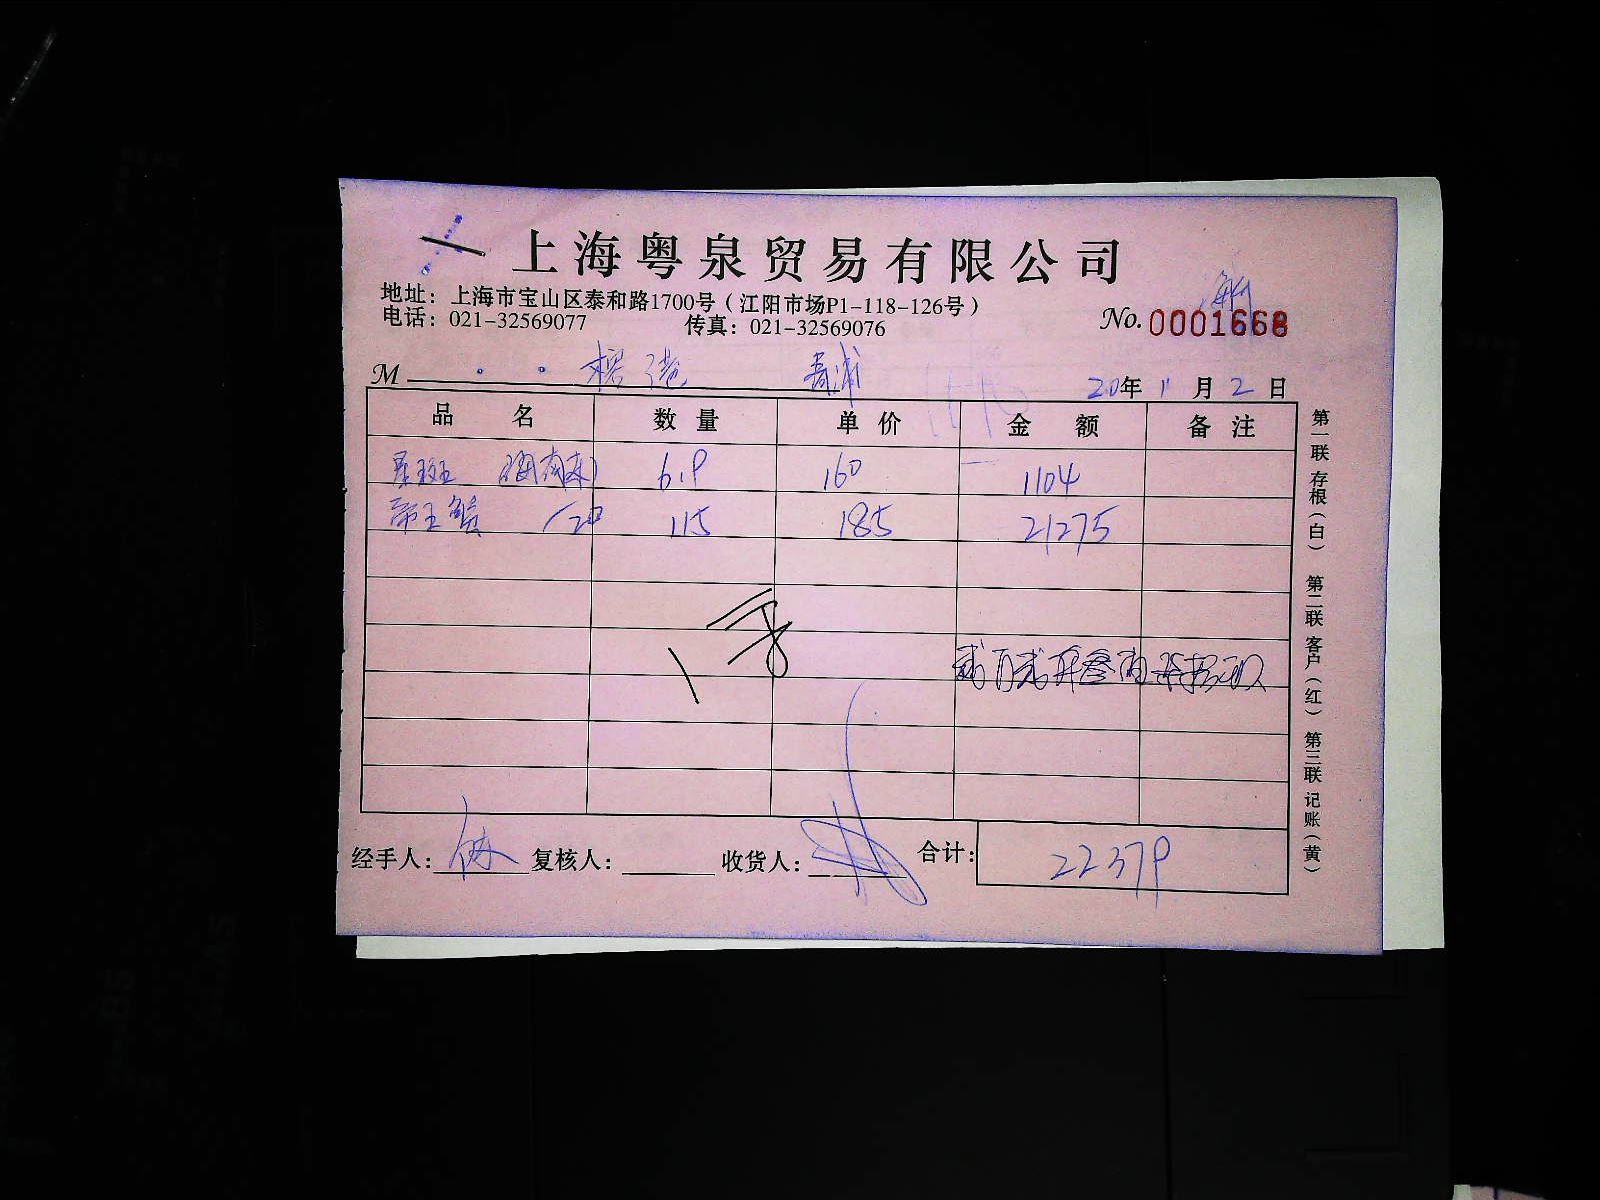 上海粤泉贸易有限公司
地址：上海市宝山区泰和路1700号（江阳市场P1-118-126号）
电话：021-32569077 传真：021-32569076
No. 0001668
M 榕港 青浦 20年11月2日
品名 数量 单价 金额 备注
星斑 6.9 160 1104
帝王蟹 115 185 21275
经手人： 复核人： 收货人： 合计： 22379
第一联 存根（白） 第二联 客户（红） 第三联 记账（黄）